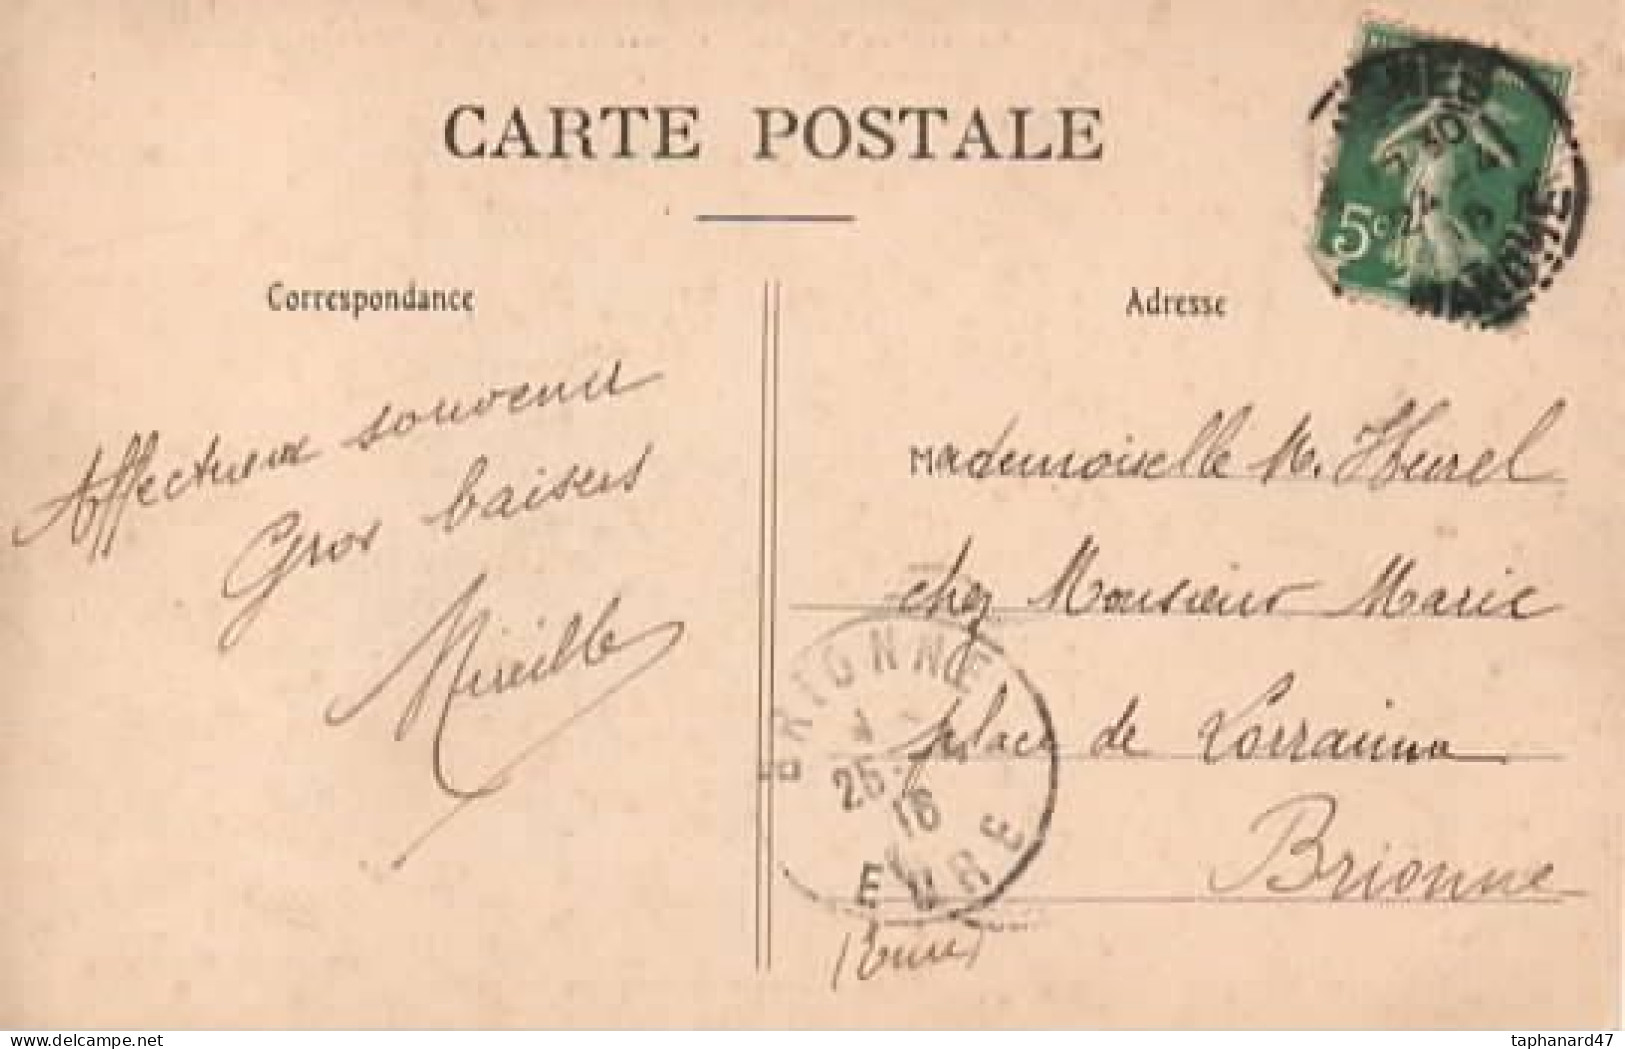 CARTE POSTALE
Correspondance
Adresse
5c
Affectueux souvenir
Gros baisers
Mireille
Mademoiselle M. Hurel
chez Monsieur Marie
place de Lorraine
Brionne
(Eure)
BRIONNE
25
16
EURE
taphanard47